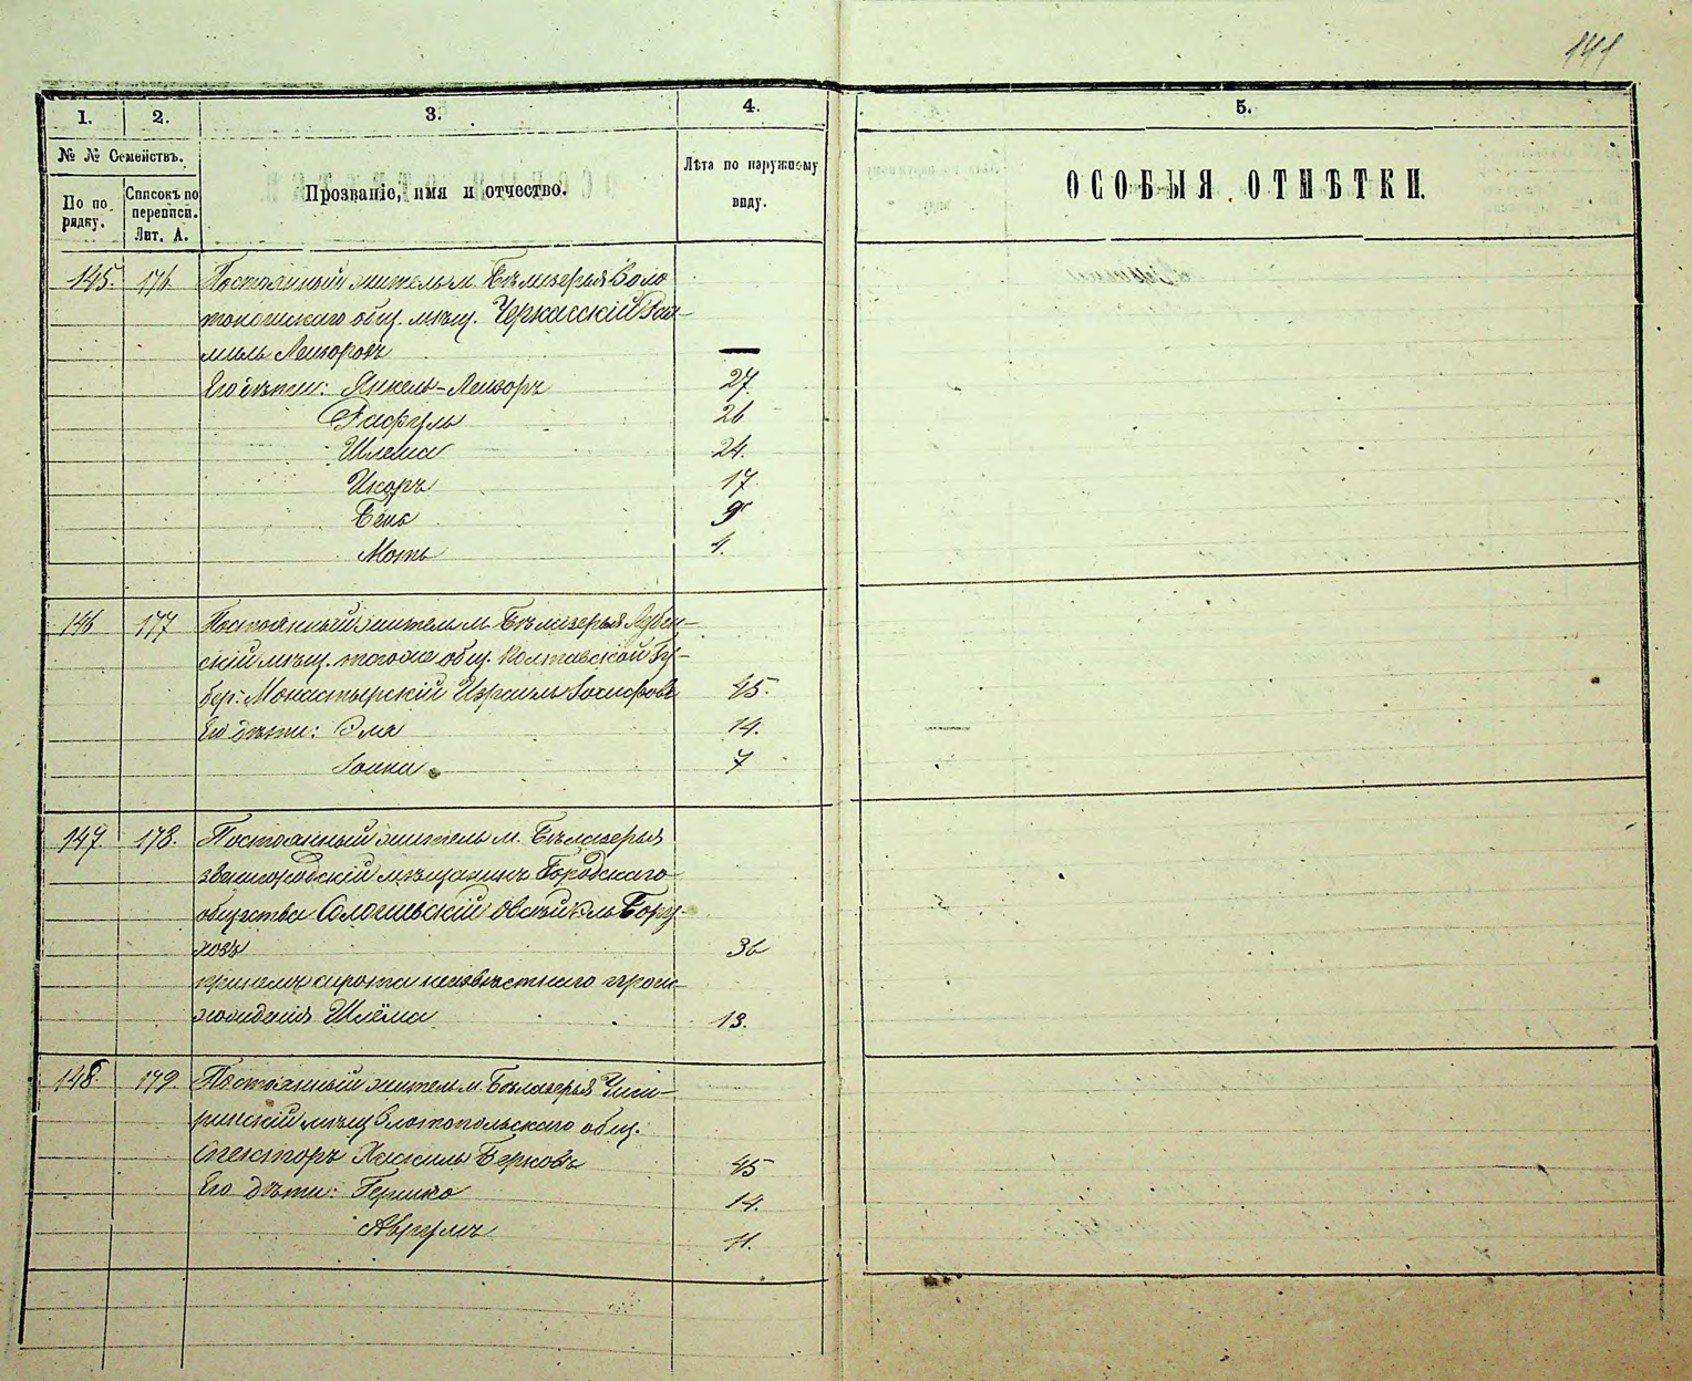 141
1. 2. 3. 4. 5.
№ № Семействъ.
По по рядку.
Списокъ по переписи. Лит. А.
Прозваніе, имя и отчество.
Лѣта по наружному виду.
ОСОБЫЯ ОТМѢТКИ.
145. 176. Постоянный житель м. Бѣлазерья Золо
тоношскаго общ. мѣщ. Черкасскій
Лейзоровъ —
Его дѣти: Янкель-Лейзоръ 27.
Рафуль 26
Шлема 24.
Икоръ 17.
Бень 9
Моть 4.
146 177 Постоянный житель м. Бѣлазерья Лубен-
скій мѣщ. того же общ. Полтавской Гу-
бер. Монастырскій Израиль Іосифовъ 45.
Его дѣти: Эля 14.
7
147. 178. Постоянный житель м. Бѣлазерья
звенигородскій мѣщанинъ Городскаго
общества Бору-
ховъ 36
сирота неизвѣстнаго проис-
хожденія Шлёма 13.
148. 179. Постоянный житель м. Бѣлазерья Чиги-
ринскій мѣщ Златопольскаго общ.
Спекторъ Хаскиль Берковъ 45
Его дѣти: Гершко 14.
Аврумъ 11.